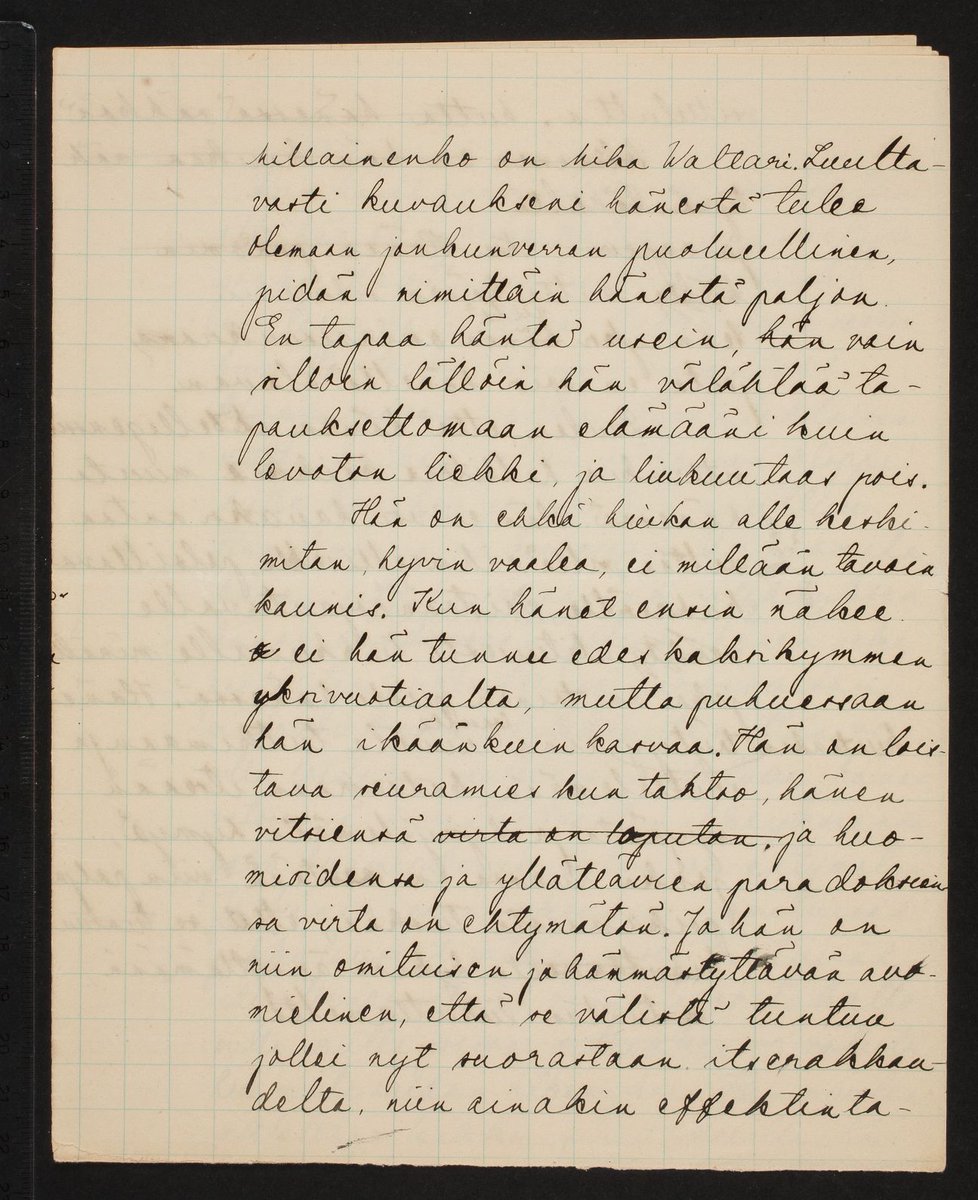 hillainenko on Mika Waltari. Luulta-
vasti kuvaukseni hänestä tulee
olemaan jonkunverran puolueellinen,
pidän nimittäin hänestä paljon.
En tapaa häntä usein, hän vain
silloin tällöin hän välähtää ta-
pauksettomaan elämääni kuin
levoton liekki, ja liukuu taas pois.
Hän on ehkä hiukan alle keski-
mitan, hyvin vaalea, ei millään tavoin
kaunis. Kun hänet ensin näkee
ei hän tunnu edes kaksikymmen
yksivuotiaalta, mutta puhuessaan
hän ikäänkuin kasvaa. Hän on lois-
tava seuramies kun tahtoo, hänen
vitsiensä virta on loputon. ja huo-
mioidensa ja yllättävien paradoksien
sa virta on ehtymätön. Ja hän on
niin omituisen ja hämmästyttävän avo-
mielinen, että se välistä tuntuu
jollei nyt suorastaan itserakkau-
delta, niin ainakin effektinta-